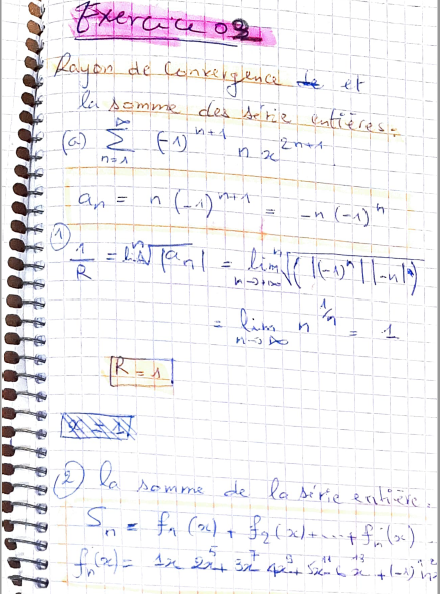 Exercice 03
Rayon de Convergence et
la somme des série entières:
(a) ∑_{n=1}^{∞} (-1)^{n+1} n x^{2n+1}
a_n = n(-1)^{n+1} = -n(-1)^n
①
1/R = lim ⁿ√|a_n| = lim_{n→+∞} ⁿ√(|(-1)^n| |-n|)
= lim_{n→∞} n^{1/n} = 1
R = 1
② la somme de la série entière.
S_n = f_1(x) + f_2(x) + ... + f_n(x)
f_n(x) = 1x 2x^5 + 3x^7 4x^9 + 5x^{11} - 6 x^{13} + (-1)^n